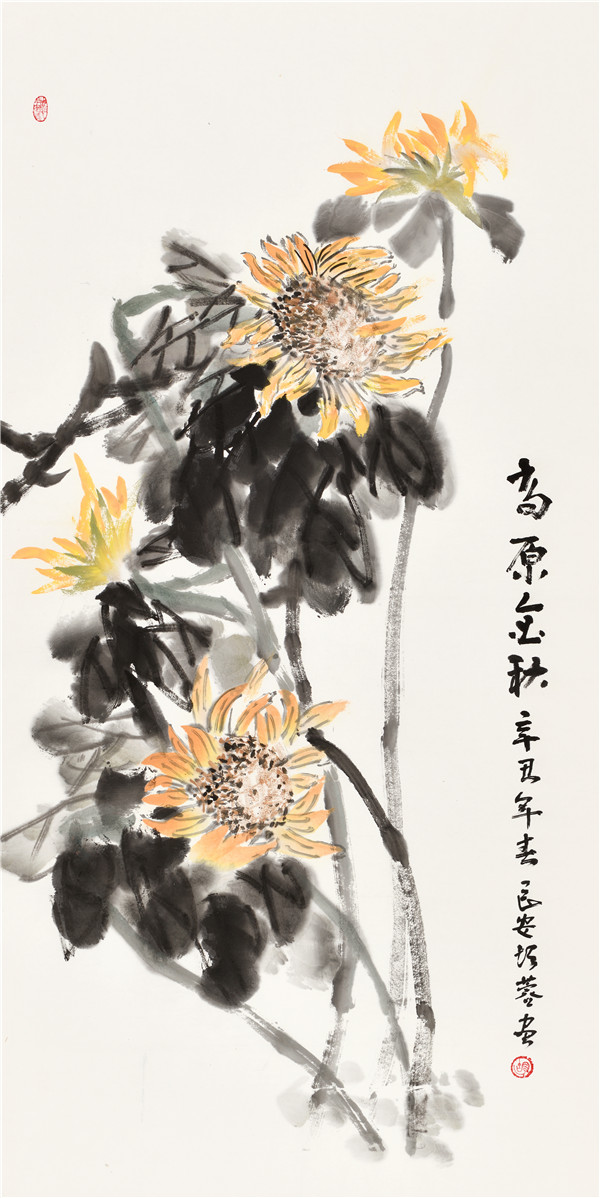 高原金秋 辛丑年春 长安 蓉画